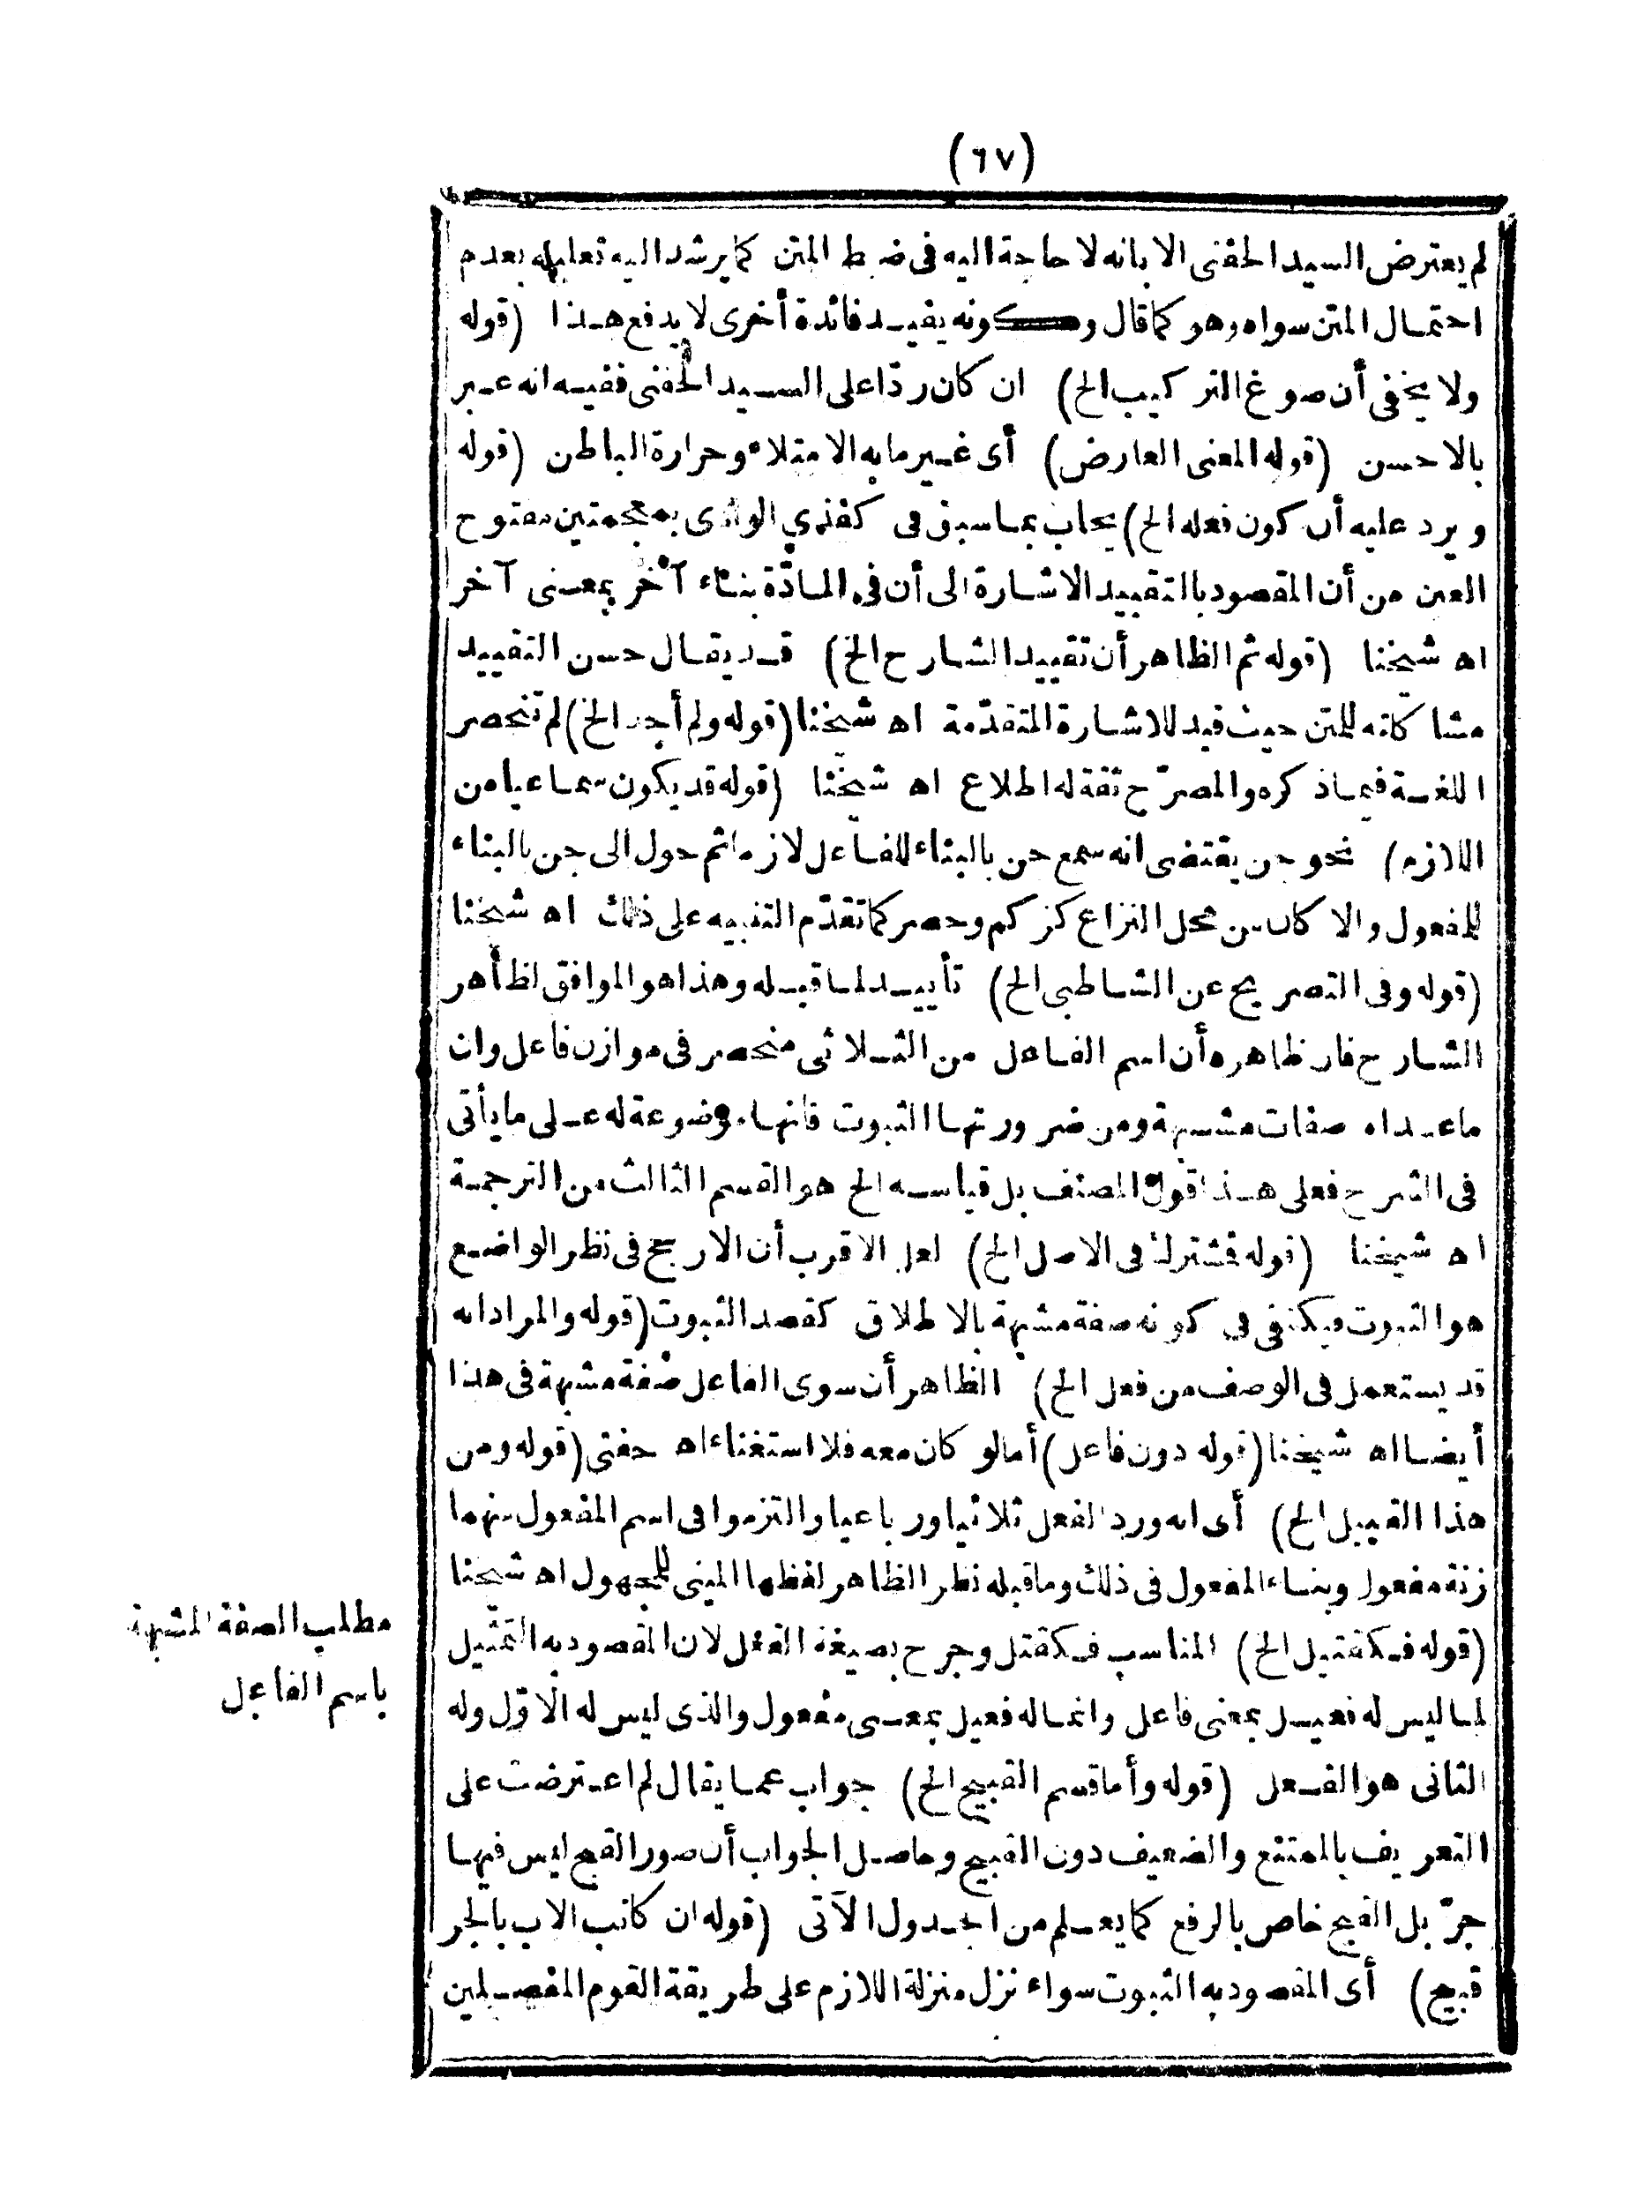 (٦٧)
لم يعترض السيد الحفنى الا بانه لا حاجة اليه فى ضبط المتن كما يرشد اليه تعليله بعدم
احتمال المتن سواه وهو كما قال وكونه يفيد فائدة أخرى لا يدفع هذا (قوله
ولا يخفى أن صوغ التركيب الخ) ان كان ردّا على السيد الحفنى ففيه انه عبر
بالاحسن (قوله المعنى العارض) أى غير ما به الامتلاء وحرارة الباطن (قوله
ويرد عليه أن كون فعله الخ) يجاب بما سبق فى كغذى الوادى بمعجمتين مفتوح
العين من أن المقصود بالتقييد الاشارة الى أن فى المادّة بناء آخر بمعنى آخر
اه شيخنا (قوله ثم الظاهر أن تقييد الشارح الخ) قد يقال حسن التقييد
مشاكلته للمتن حيث قيد للاشارة المتقدّمة اه شيخنا (قوله ولم أجد الخ) لم تنحصر
اللغة فيما ذكره والمصرّح ثقة له اطلاع اه شيخنا (قوله قد يكون سماعيا من
اللازم) نحو جن يقتضى انه سمع جن بالبناء للفاعل لازما ثم حول الى جن بالبناء
للمفعول والا كان من محل النزاع كزكم وحصر كما تقدّم التنبيه على ذلك اه شيخنا
(قوله وفى التصريح عن الشاطبى الخ) تأييد لما قبله وهذا هو الموافق لظاهر
الشارح فان ظاهره أن اسم الفاعل من الثلاثى منحصر فى موازن فاعل وان
ما عداه صفات مشبهة ومن ضرورتها الثبوت فانها موضوعة له على ما يأتى
فى الشرح فعلى هذا قول المصنف بل قياسه الخ هو القسم الثالث من الترجمة
اه شيخنا (قوله فمشترك فى الاصل الخ) لعل الاقرب أن الارجح فى نظر الواضع
هو الثبوت فيكفى فى كونه صفة مشبهة بالاطلاق كقصد الثبوت (قوله والمراد انه
قد يستعمل فى الوصف من فعل الخ) الظاهر أن سوى الفاعل صفة مشبهة فى هذا
أيضا اه شيخنا (قوله دون فاعل) أما لو كان معه فلا استغناء اه حفنى (قوله ومن
هذا القبيل الخ) أى انه ورد الفعل ثلاثيا ورباعيا والتزموا فى اسم المفعول منهما
زنة مفعول وبناء المفعول فى ذلك وما قبله نظر الظاهر لفظها المبنى للمجهول اه شيخنا
(قوله فكقتيل الخ) المناسب فكقتل وجرح بصيغة الفعل لان المقصود به التمثيل
لما ليس له فعيل بمعنى فاعل وانما له فعيل بمعنى مفعول والذى ليس له الاوّل وله
الثانى هو الفعل (قوله وأما قسم القبيح الخ) جواب عما يقال لم اعترضت على
التعريف بالممتنع والضعيف دون القبيح وحاصل الجواب أن صور القبح ليس فيها
جرّ بل القبح خاص بالرفع كما يعلم من الجدول الآتى (قوله ان كانب الاب بالجر
قبيح) أى المقصود به الثبوت سواء نزل منزلة اللازم على طريقة القوم المفصلين
مطلب الصفة المشبهة
باسم الفاعل